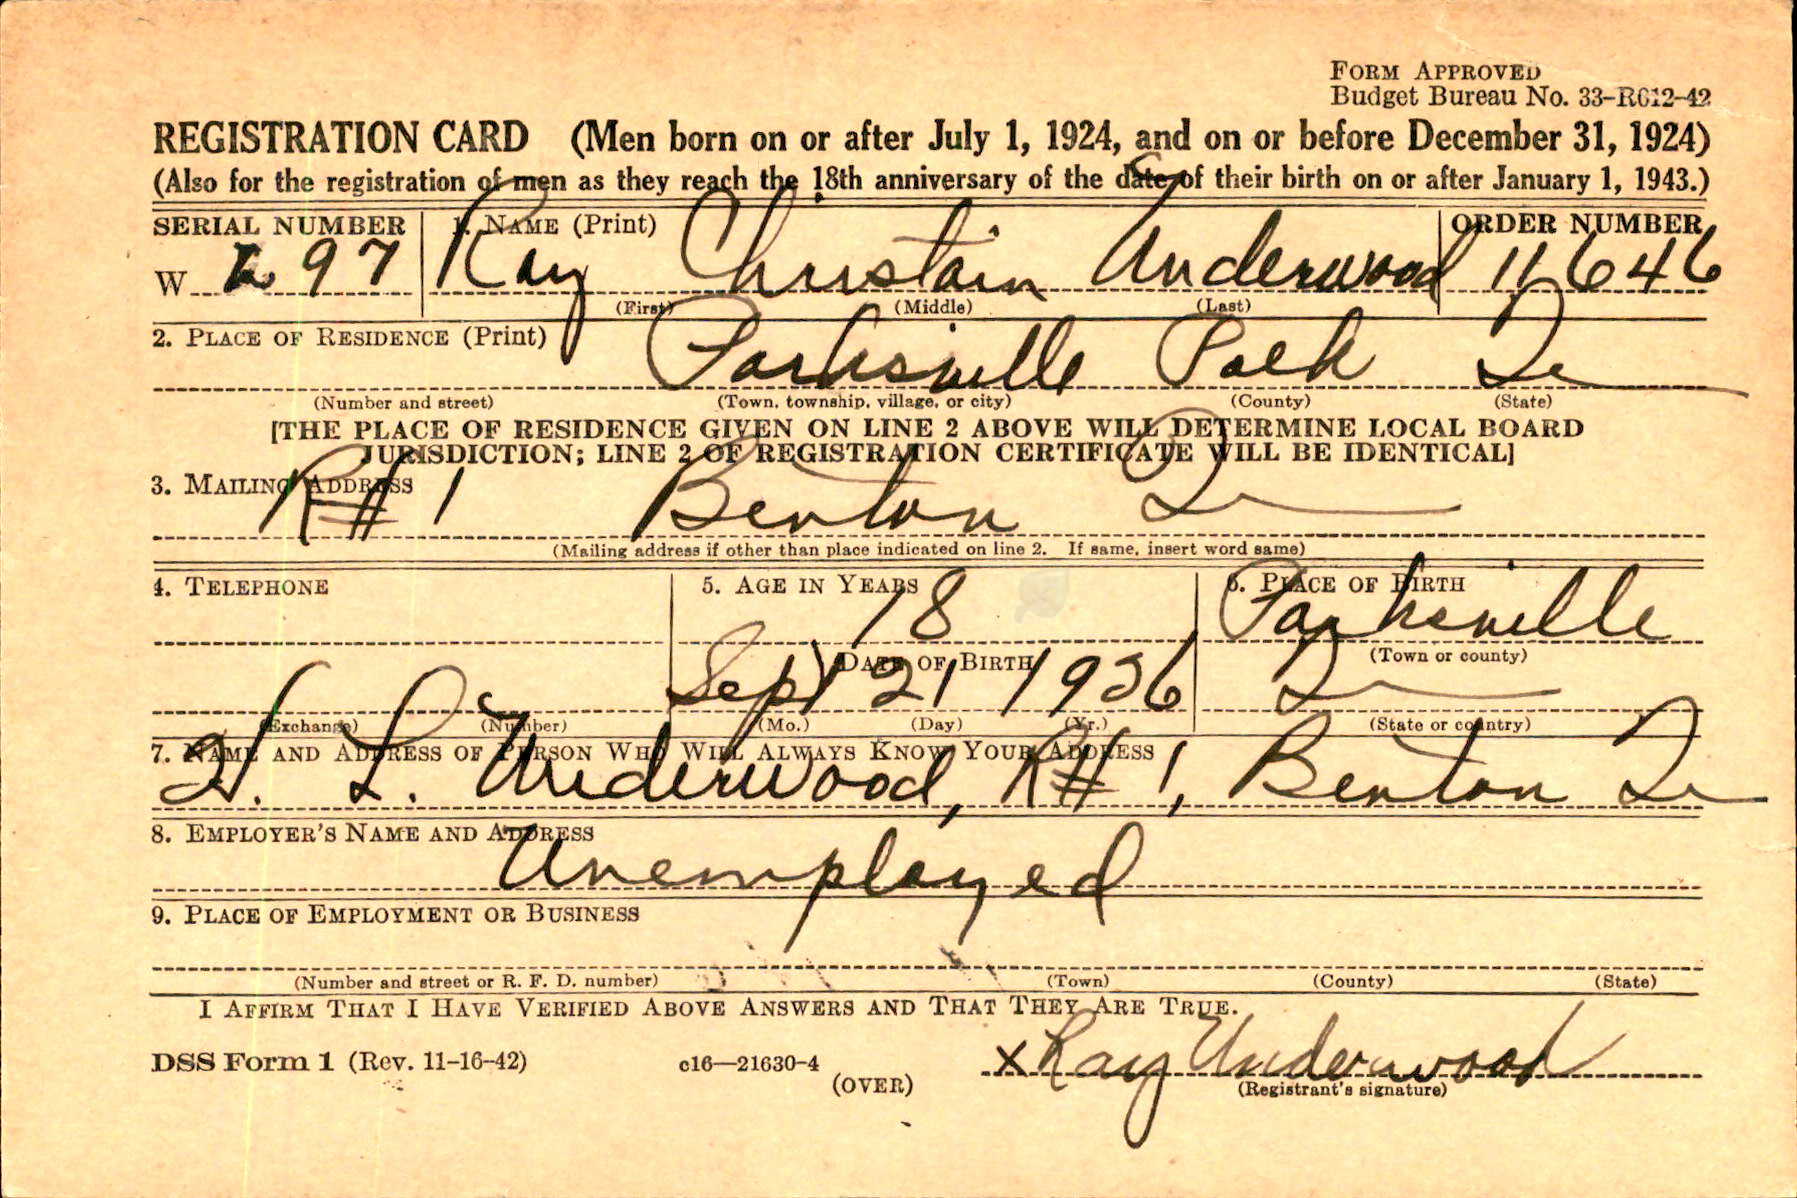 FORM APPROVED
Budget Bureau No. 33-R012-42
REGISTRATION CARD (Men born on or after July 1, 1924, and on or before December 31, 1924)
(Also for the registration of men as they reach the 18th anniversary of the date of their birth on or after January 1, 1943.)
SERIAL NUMBER 1. NAME (Print) ORDER NUMBER
W 297 Ray Christain Underwood 11646
(First) (Middle) (Last)
2. PLACE OF RESIDENCE (Print)
Parksville Polk Te
(Number and street) (Town, township, village, or city) (County) (State)
[THE PLACE OF RESIDENCE GIVEN ON LINE 2 ABOVE WILL DETERMINE LOCAL BOARD
JURISDICTION; LINE 2 OF REGISTRATION CERTIFICATE WILL BE IDENTICAL]
3. MAILING ADDRESS
R# 1 Benton Te
(Mailing address if other than place indicated on line 2. If same, insert word same)
4. TELEPHONE 5. AGE IN YEARS 6. PLACE OF BIRTH
18 Parksville
DATE OF BIRTH (Town or county)
Sept 21 1926 Te
(Exchange) (Number) (Mo.) (Day) (Yr.) (State or country)
7. NAME AND ADDRESS OF PERSON WHO WILL ALWAYS KNOW YOUR ADDRESS
H. L. Underwood, R# 1, Benton Te
8. EMPLOYER'S NAME AND ADDRESS
Unemployed
9. PLACE OF EMPLOYMENT OR BUSINESS
(Number and street or R. F. D. number) (Town) (County) (State)
I AFFIRM THAT I HAVE VERIFIED ABOVE ANSWERS AND THAT THEY ARE TRUE.
DSS Form 1 (Rev. 11-16-42) c16—21630-4 (OVER) x Ray Underwood
(Registrant's signature)